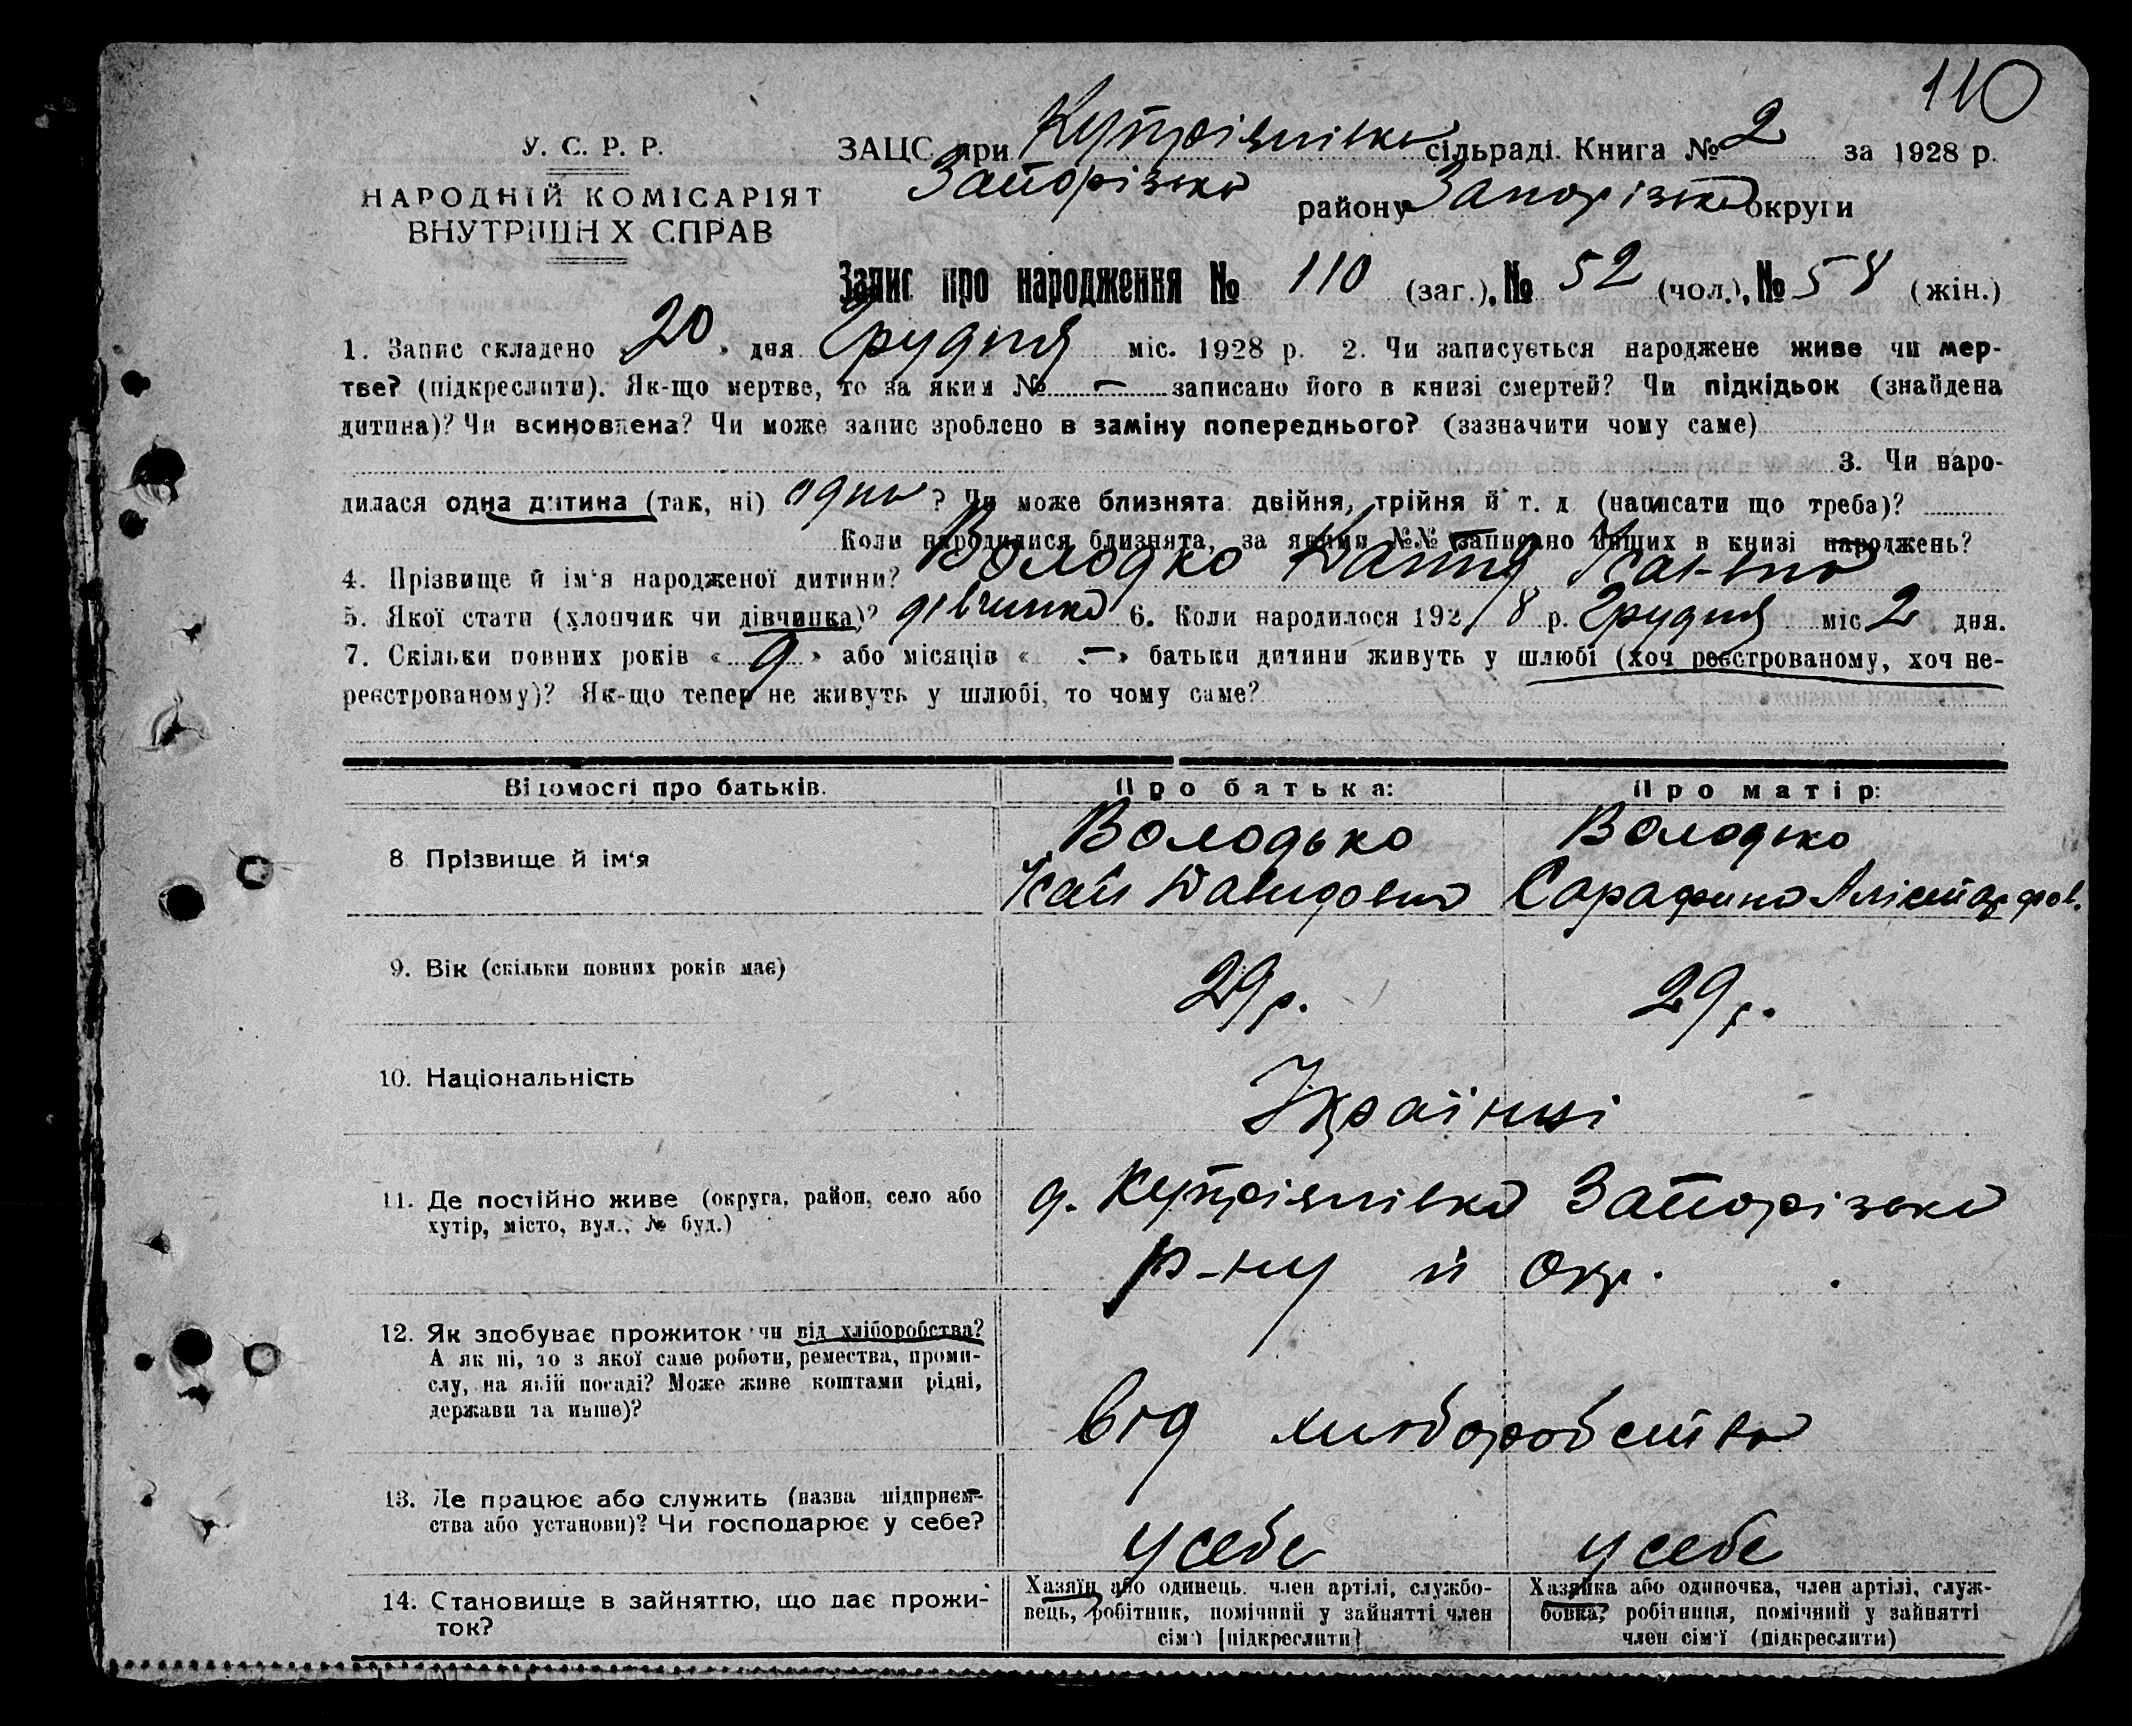 110
У. С. Р. Р.
НАРОДНІЙ КОМІСАРІЯТ
ВНУТРІШНІХ СПРАВ
ЗАЦС при Купріянівка сільраді. Книга № 2 за 1928 р.
Запорізька району Запорізька округи
Запис про народження № 110 (заг.), № 52 (чол.), № 58 (жін.)
1. Запис складено „20“ дня Грудня міс. 1928 р. 2. Чи записується народжене живе чи мер-
тве? (підкреслити). Як-що мертве, то за яким № — записано його в книзі смертей? Чи підкідьок (знайдена
дитина)? Чи всиновлена? Чи може запис зроблено в заміну попереднього? (зазначити чому саме)
3. Чи наро-
дилася одна дитина (так, ні) одна? Чи може близнята: двійня, трійня й т. д (написати що треба)?
Коли народилися близнята, за якими №№ записано инших в книзі народжень?
4. Прізвище й ім‘я народженої дитини? Володко
5. Якої стати (хлопчик чи дівчинка)? дівчинка 6. Коли народилося 1928 р. Грудня міс 2 дня.
7. Скільки повних років «9» або місяців «—» батьки дитини живуть у шлюбі (хоч реєстрованому, хоч не-
реєстрованому)? Як-що тепер не живуть у шлюбі, то чому саме?
Відомості про батьків.
Про батька:
Про матір:
8. Прізвище й ім‘я
Володько
Ісай Давидович
Володько
Сарафина Арістарфов.
9. Вік (скільки повних років має)
29 р.
29 р.
10. Національність
Українці
11. Де постійно живе (округа, район, село або
хутір, місто, вул., № буд.)
д. Купріянівка Запорізька
р-ну й окр.
12. Як здобуває прожиток чи від хліборобства?
А як ні, то з якої саме роботи, ремества, проми-
слу, на якій посаді? Може живе коштами рідні,
держави та инше)?
від хліборобства
13. Де працює або служить (назва підприєм-
ства або установи)? Чи господарює у себе?
у себе
у себе
14. Становище в зайняттю, що дає прожи-
ток?
Хазяїн або одинець. член артілі, службо-
вець, робітник, помічний у зайнятті член
сім‘ї [підкреслити]
Хазяйка або одиночка, член артілі, служ-
бовка? робітниця, помічний у зайнятті
член сім‘ї (підкреслити)